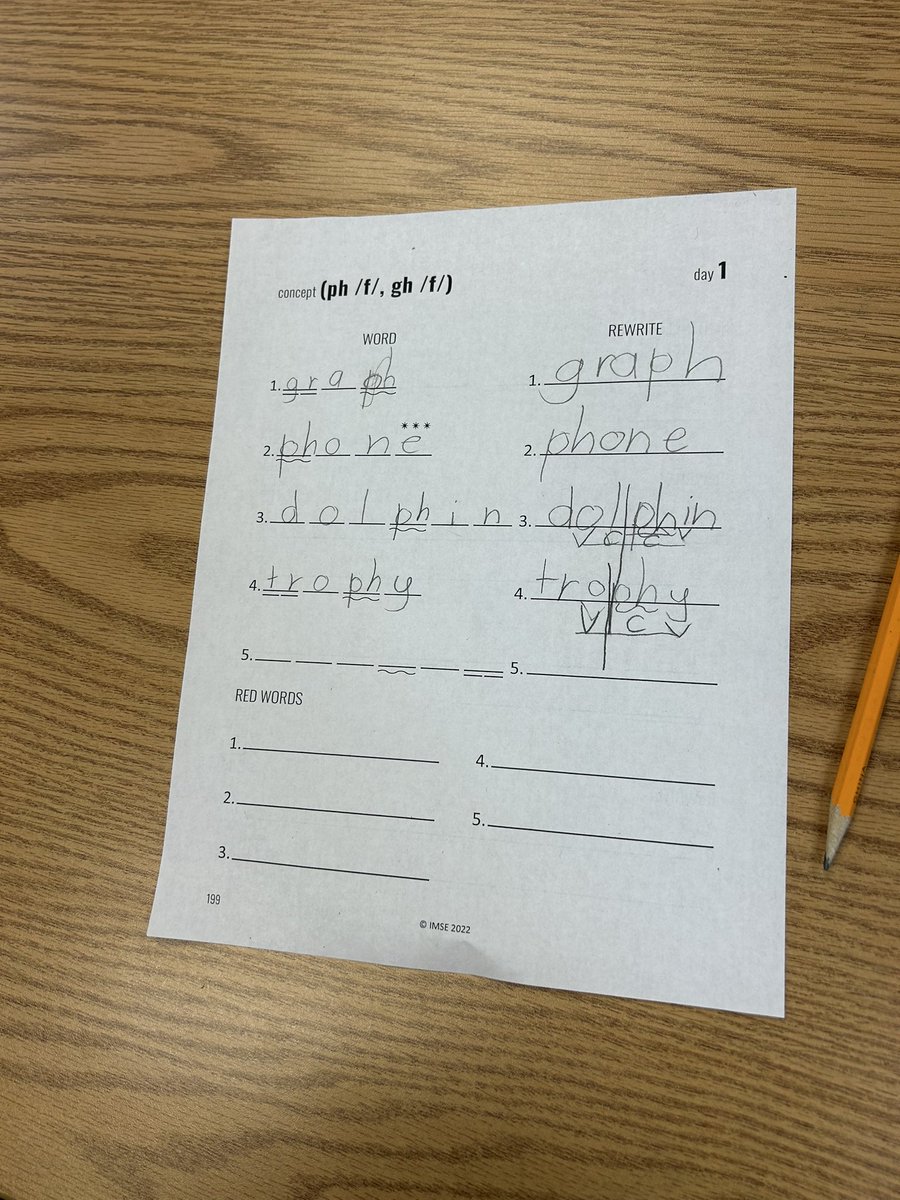 concept (ph /f/, gh /f/) day 1
WORD REWRITE
1. graph 1. graph
2. phone *** 2. phone
3. dolphin 3. dol|phin
V C C V
4. trophy 4. tro|phy
V C V
5. 5.
RED WORDS
1. 4.
2. 5.
3.
199
© IMSE 2022